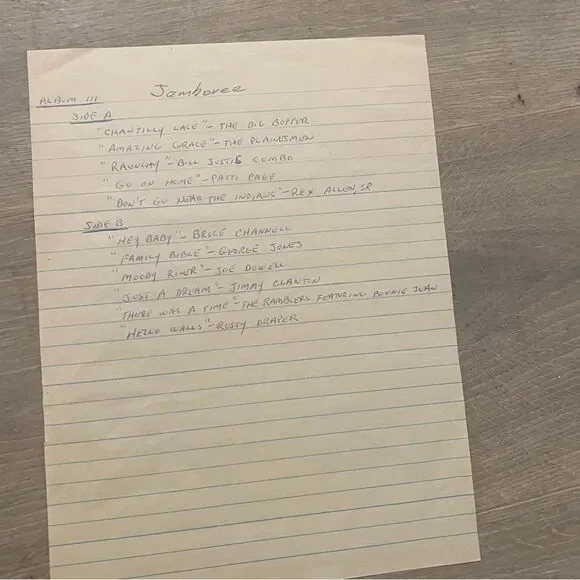 Jamboree
ALBUM III
SIDE A
"CHANTILLY LACE" - THE BIG BOPPER
"AMAZING GRACE" - THE PLAINSMEN
"RAUNCHY" - BILL JUSTIS COMBO
"GO ON HOME" - PATTI PAGE
"DON'T GO NEAR THE INDIANS" - REX ALLEN, SR
SIDE B
"HEY BABY" - BRUCE CHANNELL
"FAMILY BIBLE" - GEORGE JONES
"MOODY RIVER" - JOE DOWELL
"JUST A DREAM" - JIMMY CLANTON
"THERE WAS A TIME" - THE RAMBLERS FEATURING BONNIE JEAN
"HELLO WALLS" - RUSTY DRAPER